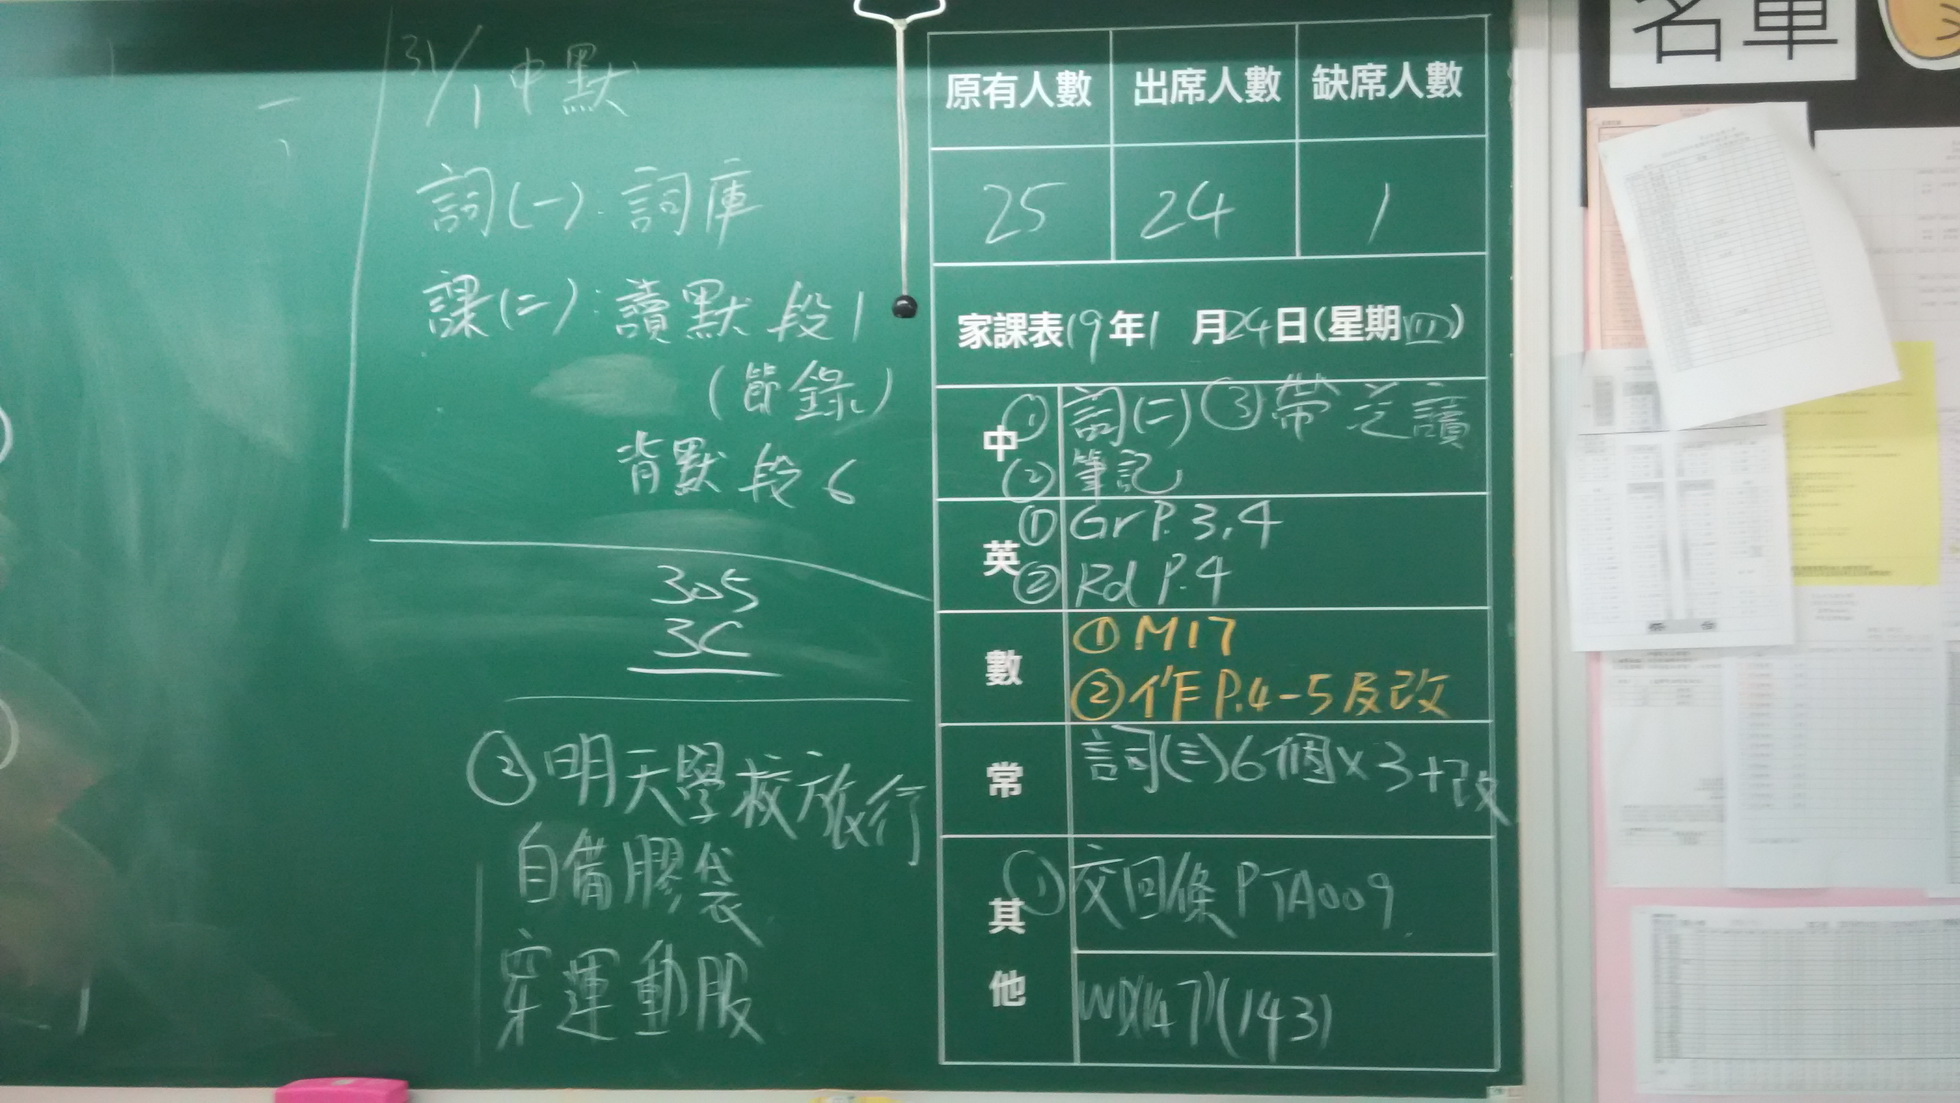 31/1 中默
詞(一):詞庫
課(二):讀默段1
(節錄)
背默段6
305
3C
②明天學校旅行
自備膠袋
穿運動服
原有人數 出席人數 缺席人數
25 24 1
家課表19年1月24日(星期四)
中 ①詞(二) ③帶芝讀
②筆記
英 ①Gr P.3,4
②Rd P.4
數 ①M17
②作P.4-5及改
常 詞(三)6個×3+改
其他 ①交回條PTA009
(147)(143)
名單